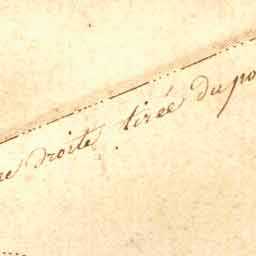 droite tirée du po